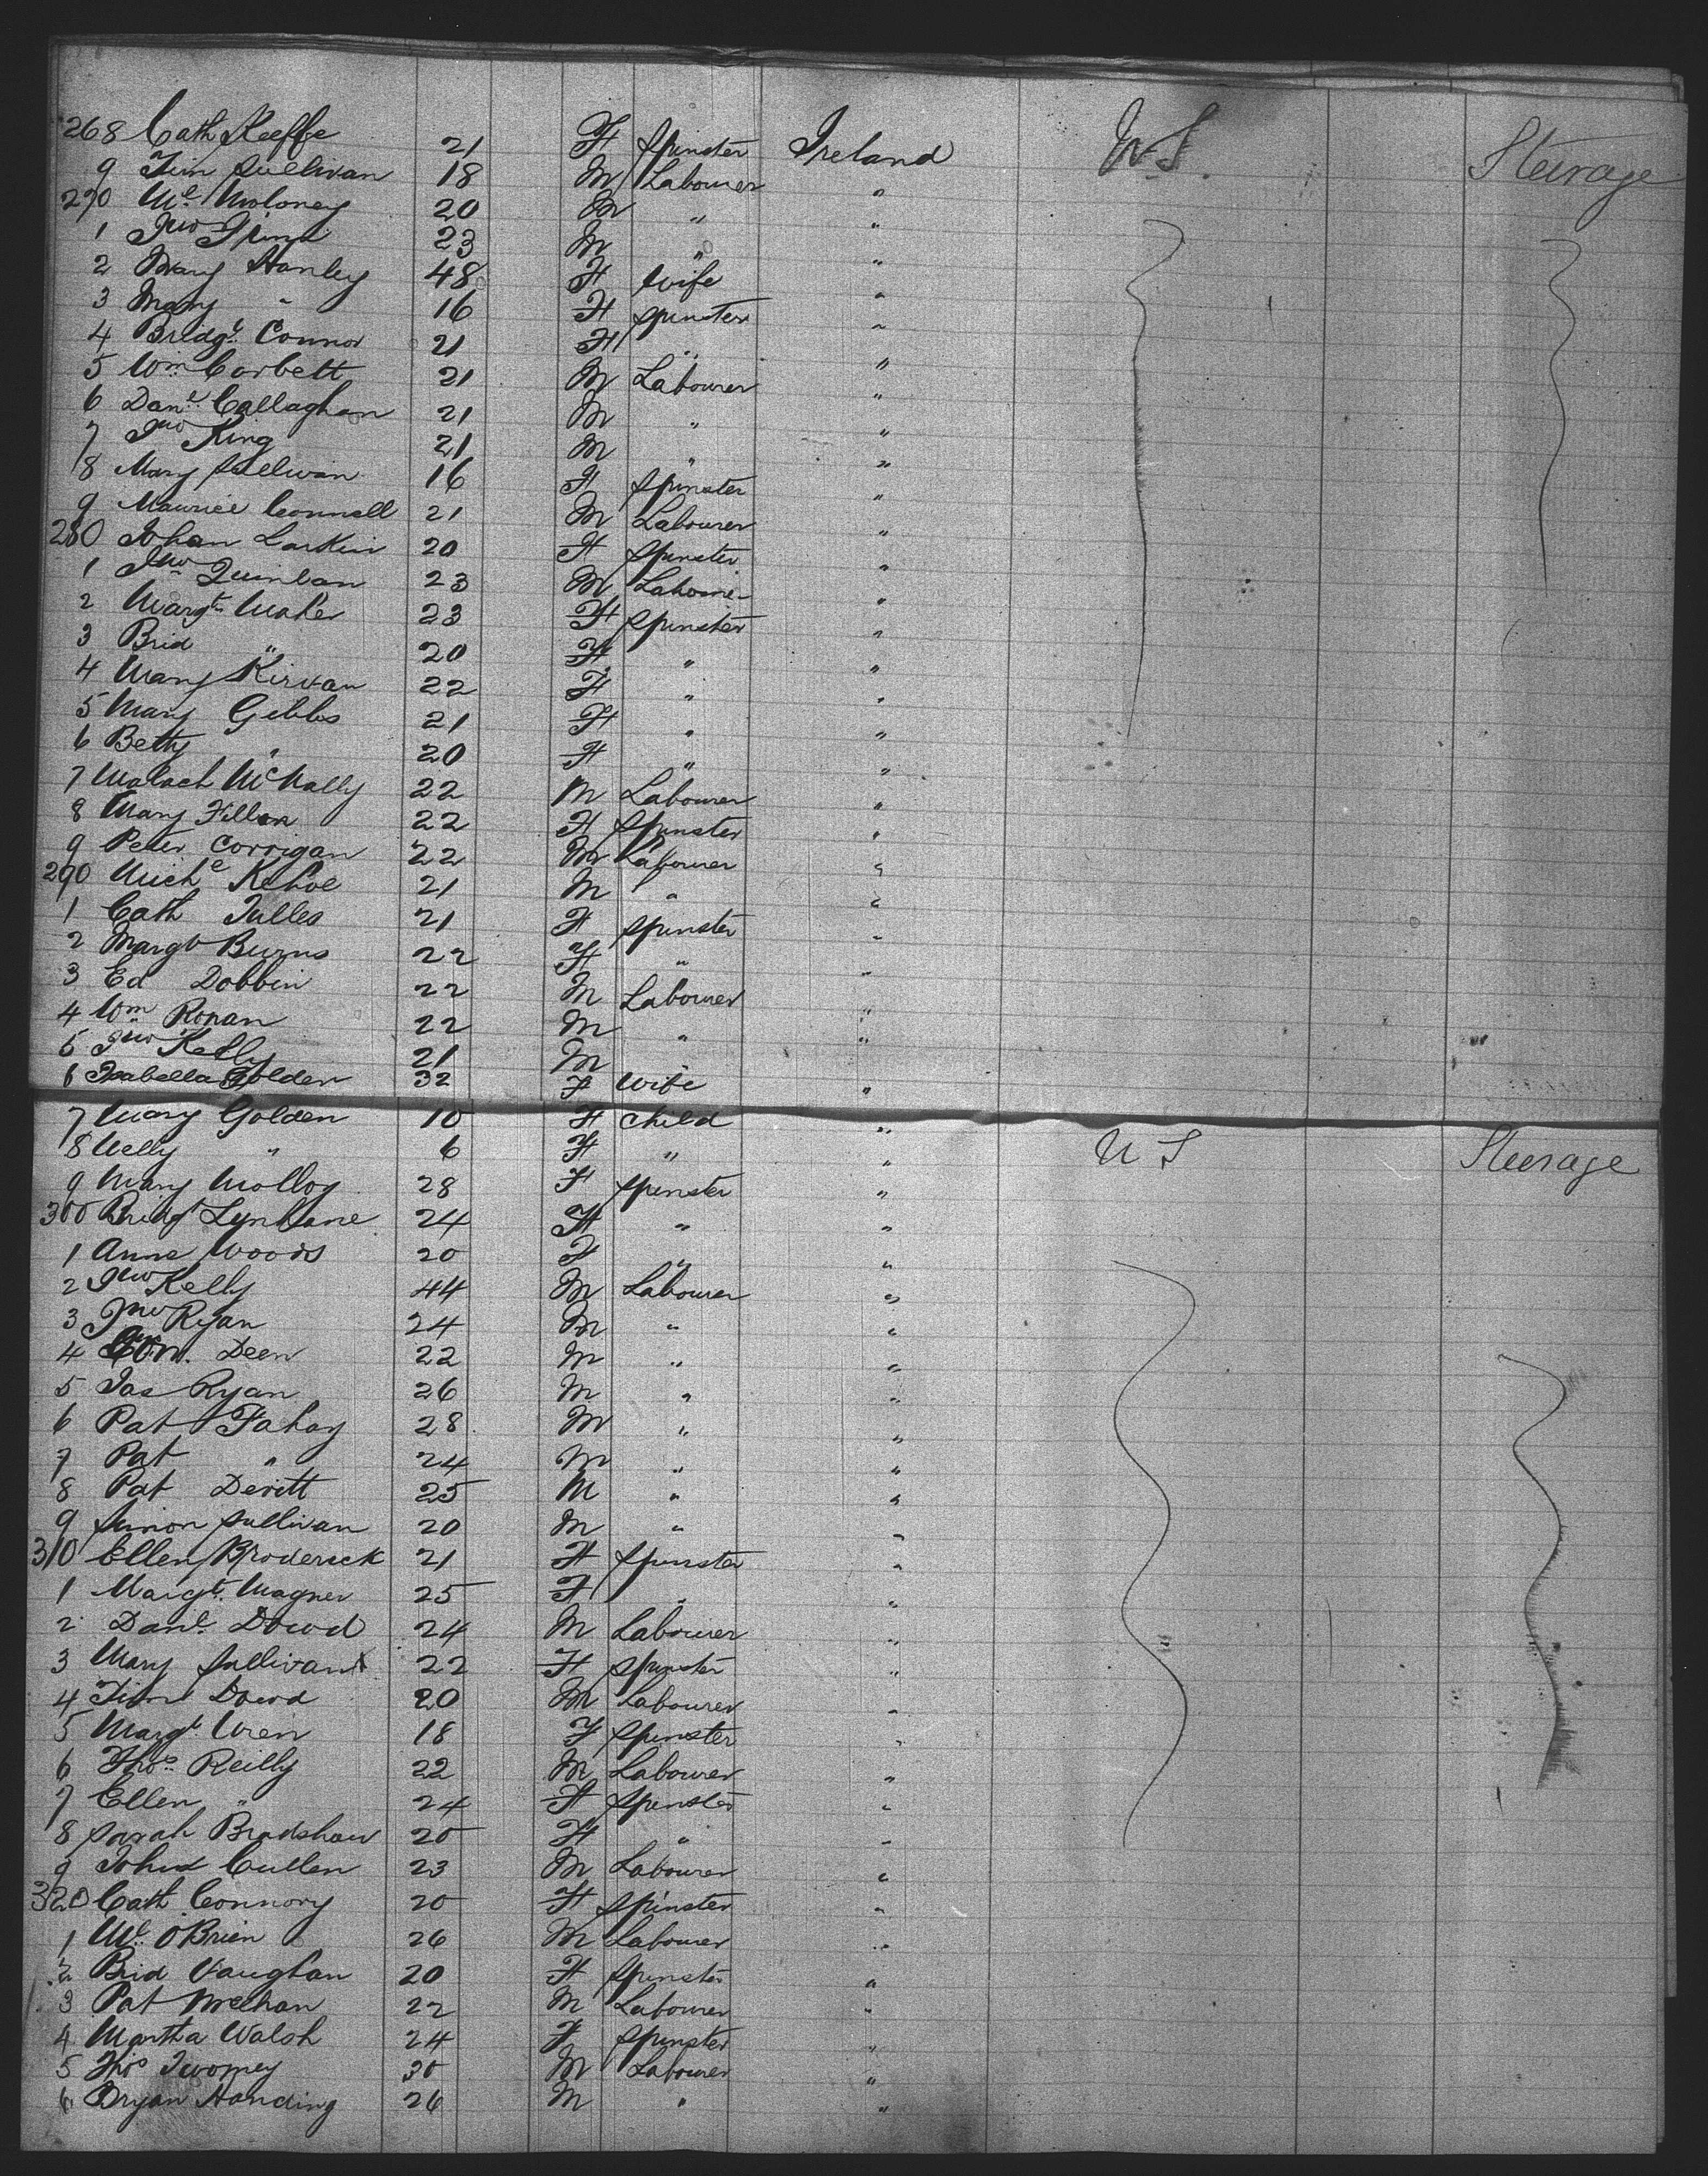 268 Cath Keeffe 21 F Spinster Ireland U.S. Steerage
9 Tim Sullivan 18 M Labourer "
270 Ml Moloney 20 M " "
1 Jno 23 M " "
2 Mary Hanley 48 F Wife "
3 Mary " 16 F Spinster "
4 Bridgt Connor 21 F " "
5 Wm Corbett 21 M Labourer "
6 Danl Callaghan 21 M " "
7 Jno King 21 M " "
8 Mary Sullivan 16 F Spinster "
9 Maurice Connell 21 M Labourer "
280 Johan Larkin 20 F Spinster "
1 Jno Quinlan 23 M Labourer "
2 Margt Maher 23 F Spinster "
3 Brid " 20 F " "
4 Mary Kirvan 22 F " "
5 Mary Gibbs 21 F " "
6 Betty " 20 F " "
7 Malach McNally 22 M Labourer "
8 Mary Fillon 22 F Spinster "
9 Peter Corrigan 22 M Labourer "
290 Michl Kehoe 21 M " "
1 Cath Tulles 21 F Spinster "
2 Margt Burns 22 F " "
3 Ed Dobbin 22 M Labourer "
4 Wm Ronan 22 M " "
5 Jno Kelly 21 M " "
6 Isabella Golden 32 F Wife "
7 Mary Golden 10 F Child "
8 Nelly " 6 F " " U S Steerage
9 Mary Molloy 28 F Spinster "
300 Bridgt 24 F " "
1 Anne Woods 20 F " "
2 Jno Kelly 44 M Labourer "
3 Jno Ryan 24 M " "
4 Deen 22 M " "
5 Jas Ryan 26 M " "
6 Pat Fahay 28 M " "
7 Pat " 24 M " "
8 Pat Devitt 25 M " "
9 Simon Sullivan 20 M " "
310 Ellen Broderick 21 F Spinster "
1 Margt Magner 25 F " "
2 Danl Dowd 24 M Labourer "
3 Mary Sullivan 22 F Spinster "
4 Tim Dowd 20 M Labourer "
5 Margt Wren 18 F Spinster "
6 Thos Reilly 22 M Labourer "
7 Ellen " 24 F Spinster "
8 Sarah Bradshaw 20 F " "
9 John Cullen 23 M Labourer "
320 Cath Connory 20 F Spinster "
1 Ml O'Brien 26 M Labourer "
2 Brid Vaughan 20 F Spinster "
3 Pat Meehan 22 M Labourer "
4 Martha Walsh 24 F Spinster "
5 Thos Twomey 30 M Labourer "
6 Bryan Handing 26 M " "